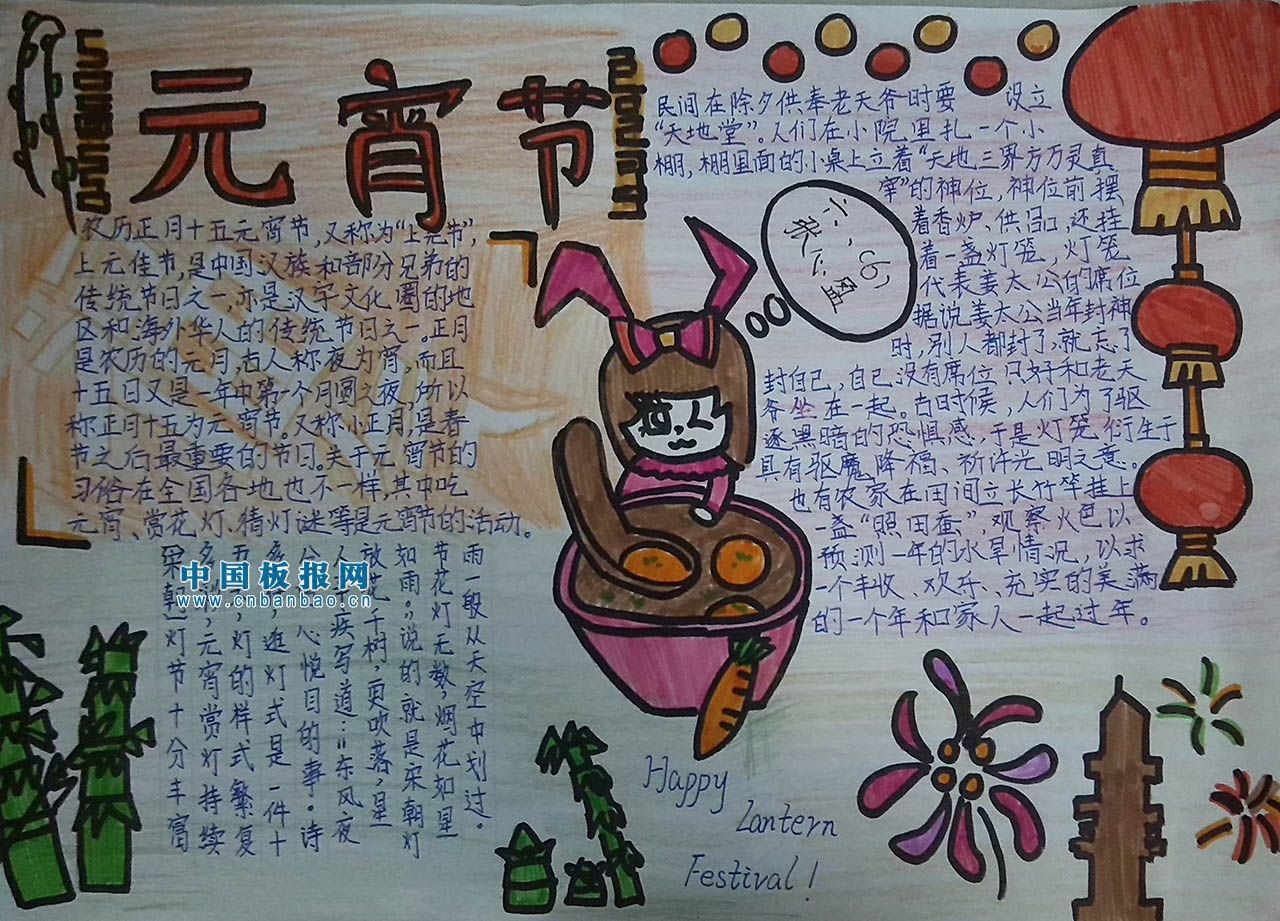 元宵节
农历正月十五元宵节，又称为“上元节”，
上元佳节，是中国汉族和部分兄弟的
传统节日之一，亦是汉字文化圈的地
区和海外华人的传统节日之一。正月
是农历的元月，古人称夜为宵，而且
十五日又是一年中第一个月圆之夜，所以
称正月十五为元宵节。又称小正月，是春
节之后最重要的节日。关于元宵节的
习俗在全国各地也不一样，其中吃
元宵、赏花灯、猜灯谜等是元宵节的活动。
民间在除夕供奉老天爷时要 设立
“天地堂”。人们在小院里扎一个小
棚，棚里面的小桌上立着“天地三界方万灵真
宰”的神位，神位前摆
着香炉、供品，还挂
着一盏灯笼，灯笼
代表姜太公的席位
据说姜太公当年封神
时，别人都封了，就忘了
封自己，自己没有席位只好和老天
爷坐在一起。古时候，人们为了驱
逐黑暗的恐惧感，于是灯笼衍生于
具有驱魔降福、祈许光明之意。
也有农家在田间立长竹竿挂上
一盏“照田蚕”，观察火色以
预测一年的水旱情况，以求
一个丰收、欢乐、充实的美满
的一个年和家人一起过年。
灯节十分丰富
，元宵赏灯持续
五，灯的样式繁复
，逛灯式是一件十
心悦目的事。诗
人疾写道：“东风夜
放花千树，更吹落，星
如雨。”说的就是宋朝灯
节花灯无数，烟花如星
雨一般从天空中划过。
中国板报网
www.cnbanbao.cn
Happy
Lantern
Festival!